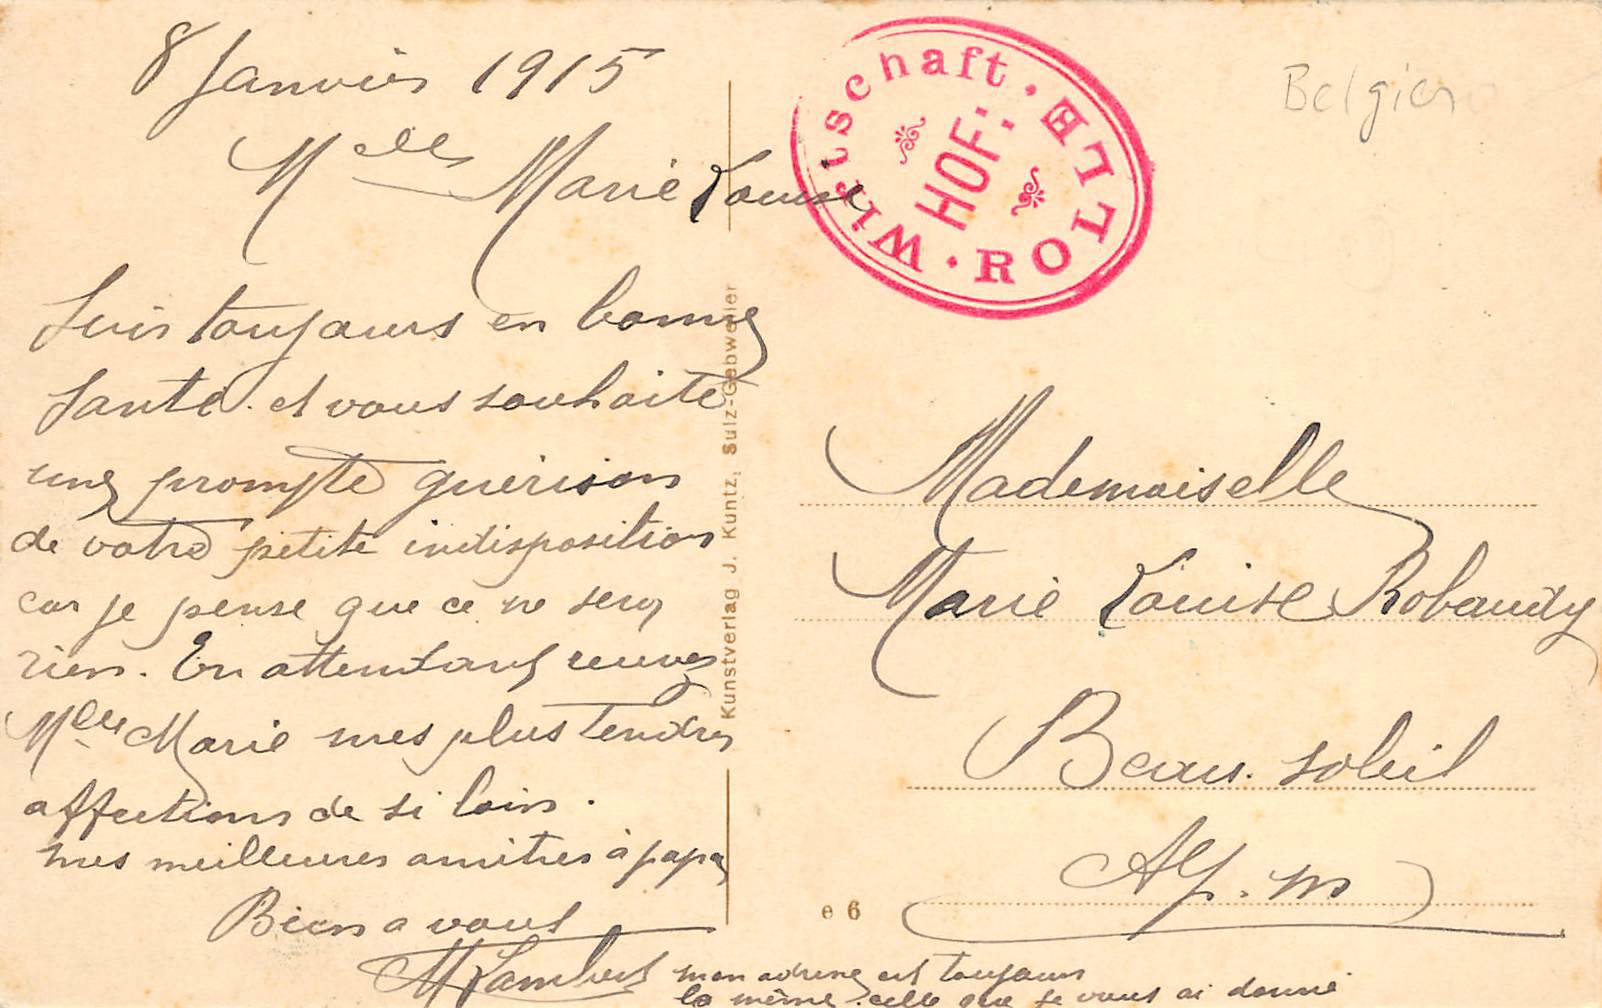 8 Janvier 1915
Melle Marie Louise
Suis toujours en bonne
Santé. et vous souhaite
une prompte guérison
de votre petite indisposition
car je pense que ce ne sera
rien. En attendant recevez
Mlle Marie mes plus tendres
affections de si loin.
mes meilleures amitiés à papa
Bien a vous
M Lambert
mon adresse est toujours
la même. celle que je vous ai donné
Kunstverlag J. Kuntz, Sulz-Gebweiler
Wirtschaft · ROLLE ·
HOF:
Belgien
Mademoiselle
Marie Louise Robaudy
Beau. soleil
Alp. m
e 6